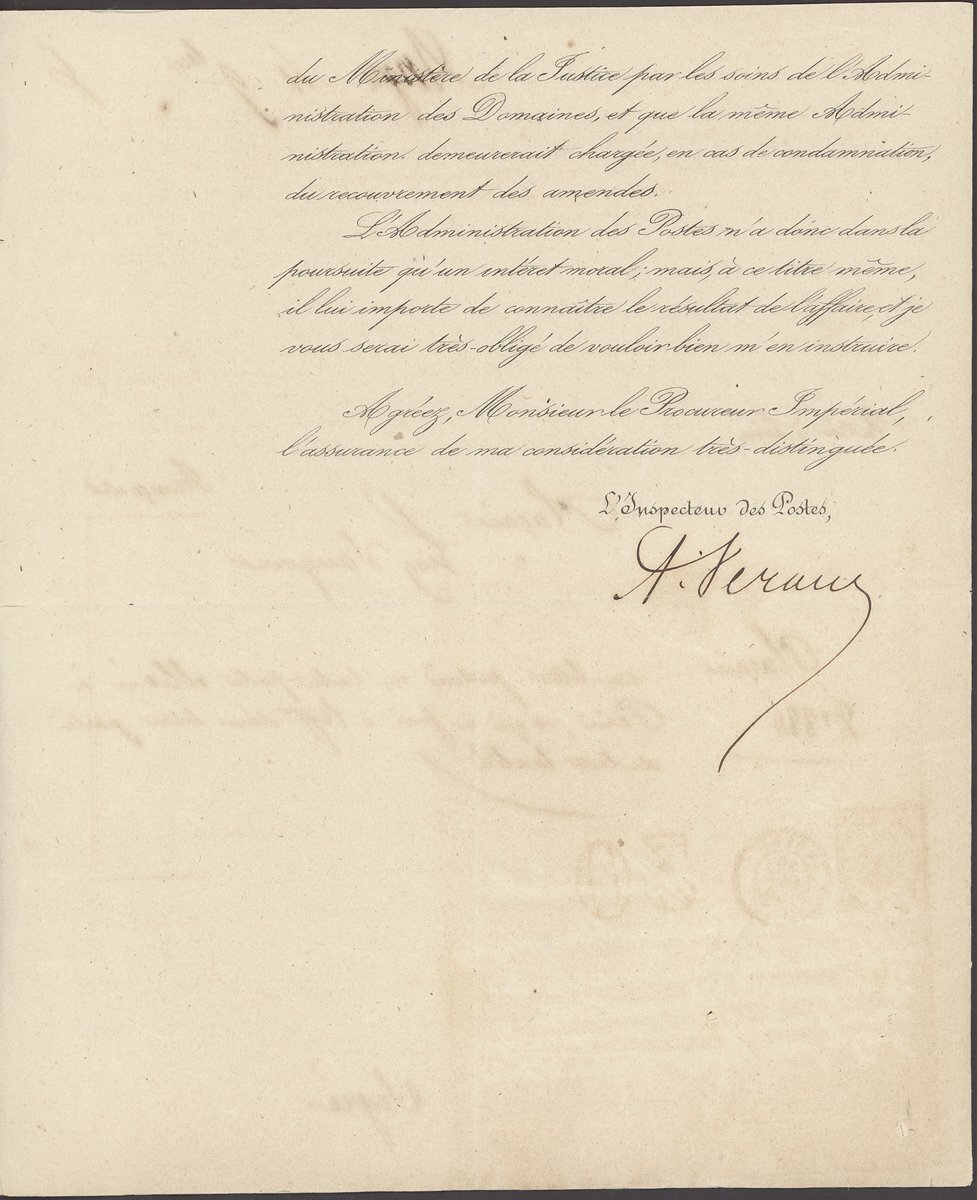 du Ministère de la Justice par les soins de l'Admi-
nistration des Domaines, et que la même Admi-
nistration. demeurerait chargée, en cas de condamnation,
du recouvrement des amendes.
L'Administration des Postes n'a donc dans la
poursuite qu'un intéret moral; mais, à ce titre même,
il lui importe de connaître le résultat de l'affaire, et je
vous serai très-obligé de vouloir bien m'en instruire.
Agréez, Monsieur le Procureur Impérial,
l'assurance de ma considération très-distinguée.
L'Inspecteur des Postes,
A.